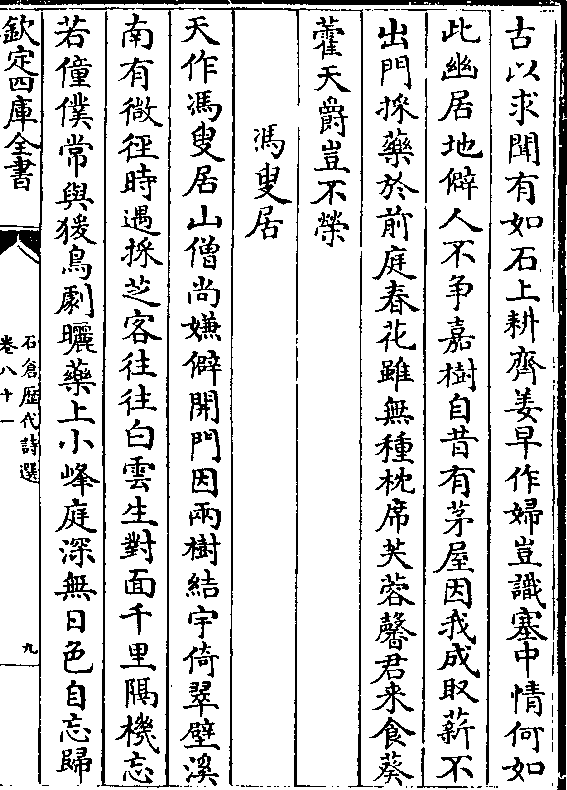 古以求聞有如石上耕齊姜早作婦豈識塞中情何如
此幽居地僻人不争嘉樹自昔有茅屋因我成取薪不
出門採藥於前庭春花雖無種枕席芙蓉馨君来食葵
藿天爵豈不榮
馮叟居
天作馮叟居山僧尚嫌僻開門因兩樹結宇倚翠壁溪
南有微徑時遇採芝客往往白雲生對面千里隔機忘
若僮僕常與猨鳥劇曬藥上小峰庭深無日色自忘歸
欽定四庫全書
石倉歷代詩選
卷八十一
九